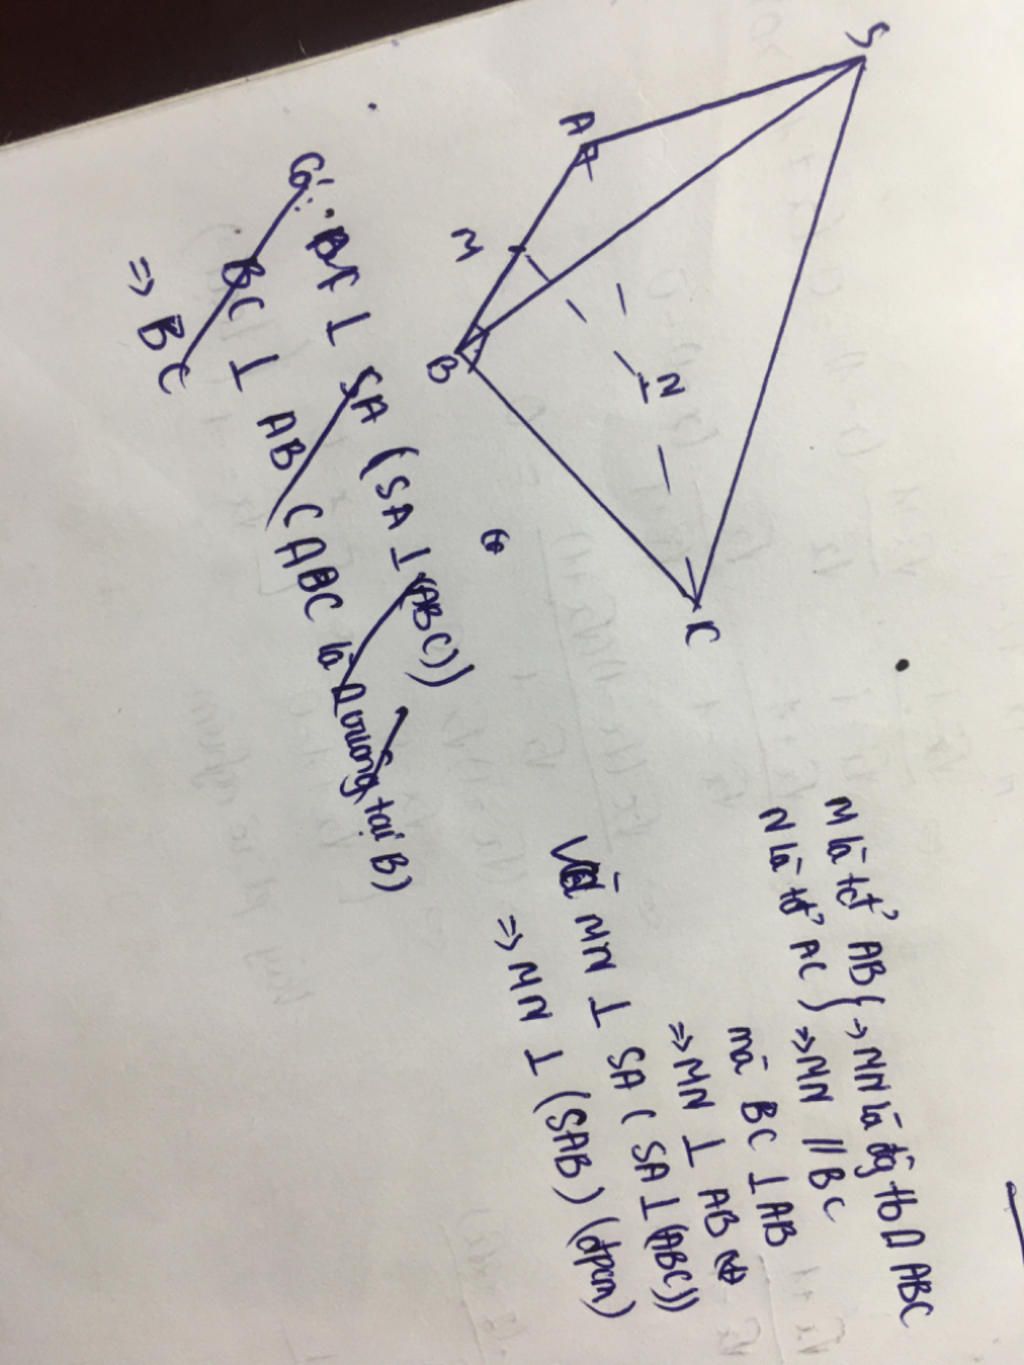 S
A
M
N
B
C
Có:
BC ⊥ SA (SA ⊥ (ABC))
BC ⊥ AB (ABC là Δ vuông tại B)
=> BC
M là tđ' AB } -> MN là đg tb Δ ABC
N là tđ' AC } => MN // BC
mà BC ⊥ AB
=> MN ⊥ AB
Và MN ⊥ SA (SA ⊥ (ABC))
=> MN ⊥ (SAB) (đpcm)